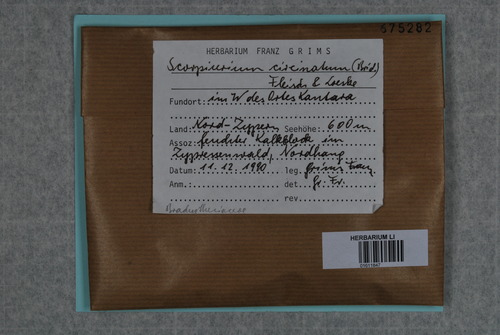 675282
HERBARIUM FRANZ GRIMS
Scorpiurium circinatum (Brid.)
Fleisch & Loeske
Fundort: im W des Ortes Kantara
Land: Nord-Zypern Seehöhe: 600 m
Assoz: feuchter Kalkblock im
Zypressenwald, Nordhang
Datum: 11.12.1990 leg. Grims Franz
Anm.: det. Gr. Fr.
rev.
Brachytheciaceae
HERBARIUM LI